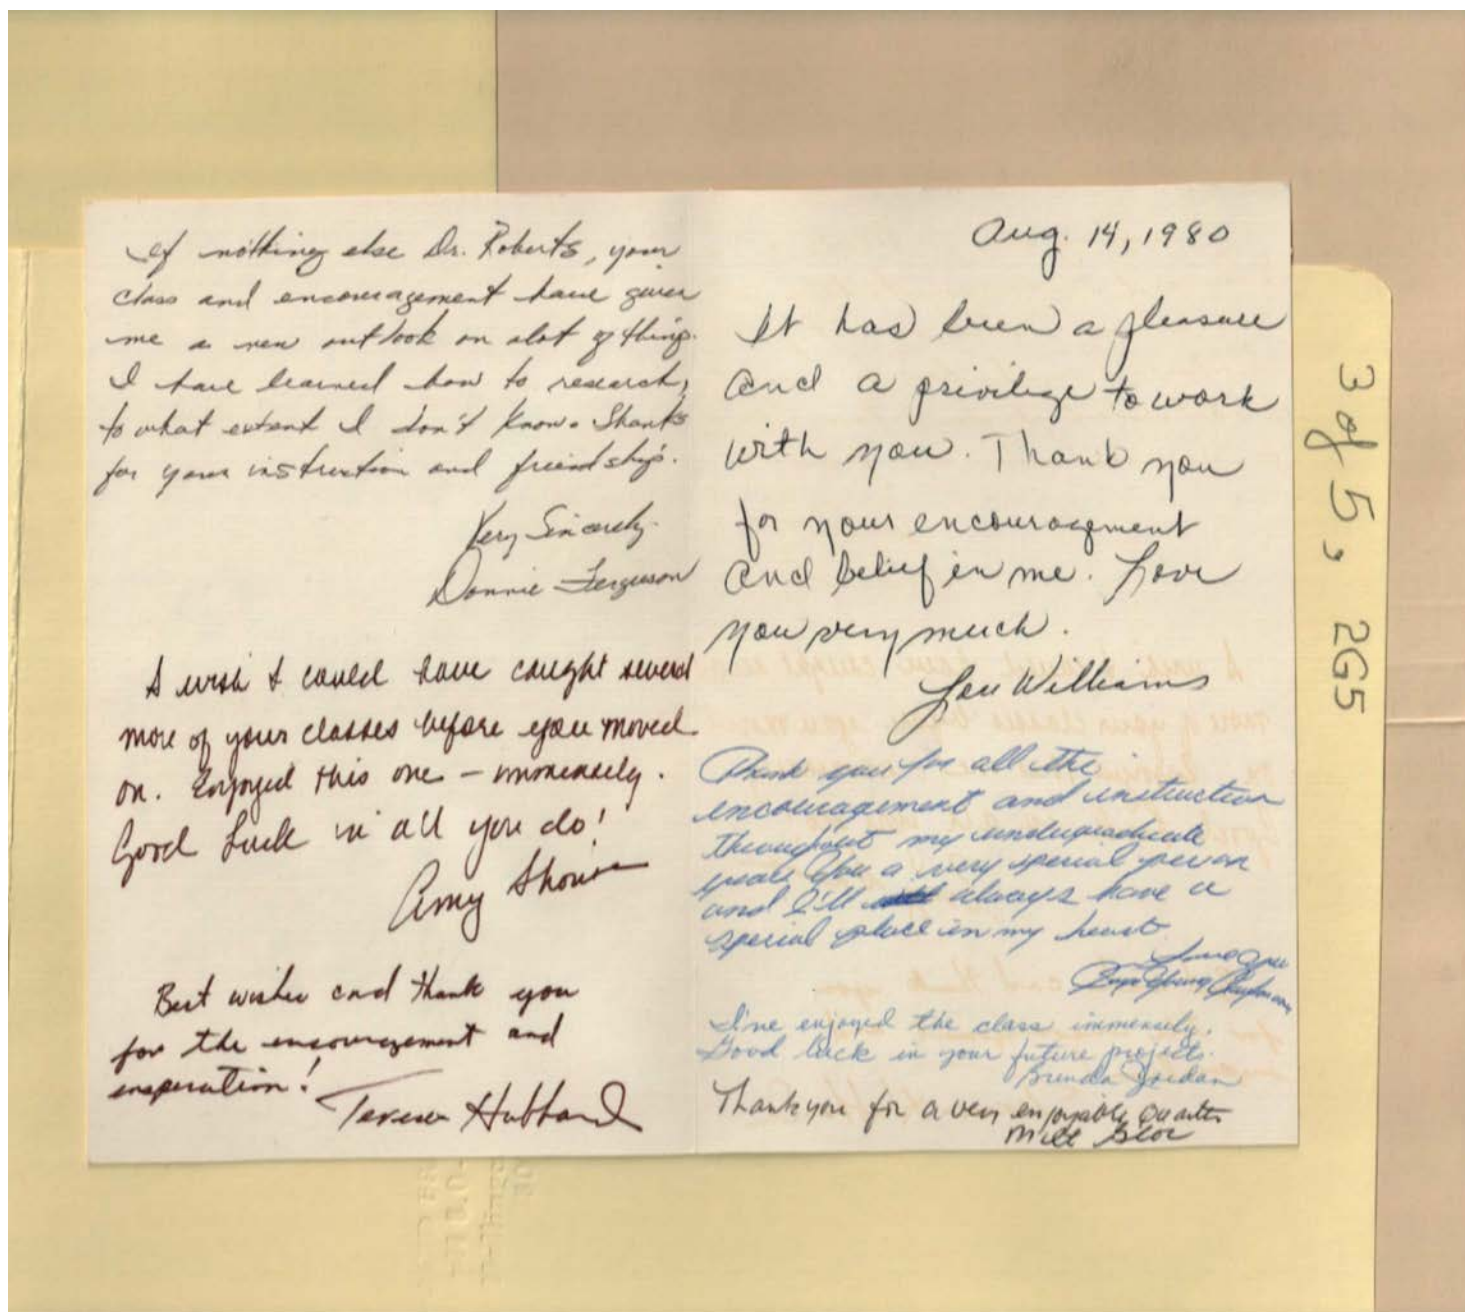 If nothing else Dr. Roberts, your
class and encouragement have given
me a new outlook on alot of things.
I have learned how to research,
to what extent I don't know. Thanks
for your instruction and friendship.
Very Sincerely.
Donnie Ferguson
I wish I could have caught several
more of your classes before you moved
on. Enjoyed this one – immensely.
Good Luck in all you do!
Amy
Best wishes and thank you
for the encouragement and
insperation!
Teresa Hubbard
Aug. 14, 1980
It has been a pleasure
and a privilege to work
with you. Thank you
for your encouragement
and belief in me. Love
you very much.
Lou Williams
Thank you for all the
encouragement and instruction
throughout my undergraduate
years. You a very special person
and I'll always have a
special place in my heart
Love you
I've enjoyed the class immensely.
Good luck in your future projects.
Brenda Jordan
Thank you for a very enjoyable Quarter
3 of 5, 2G5